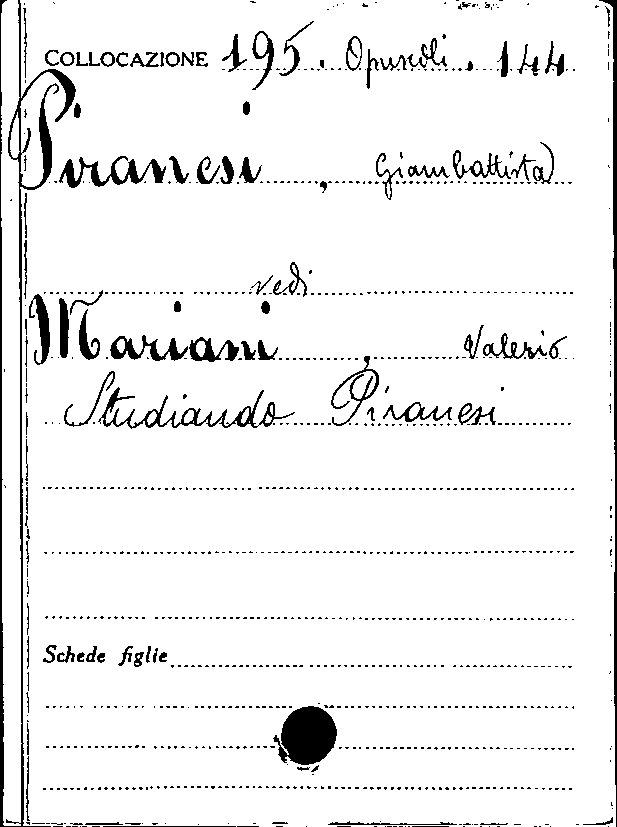 COLLOCAZIONE 195. Opuscoli. 144
Piranesi, Giambattista
vedi
Mariani, Valerio
Studiando Piranesi
Schede figlie